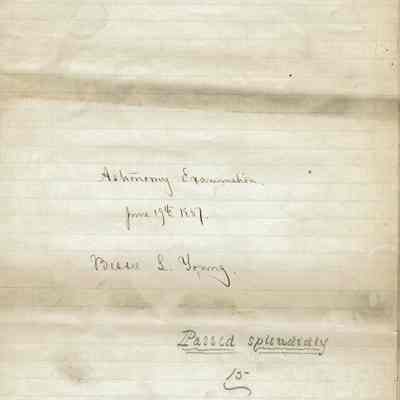 Astronomy Examination.
June 19th 1887.
Bessie L. Young.
Passed splendidly
15